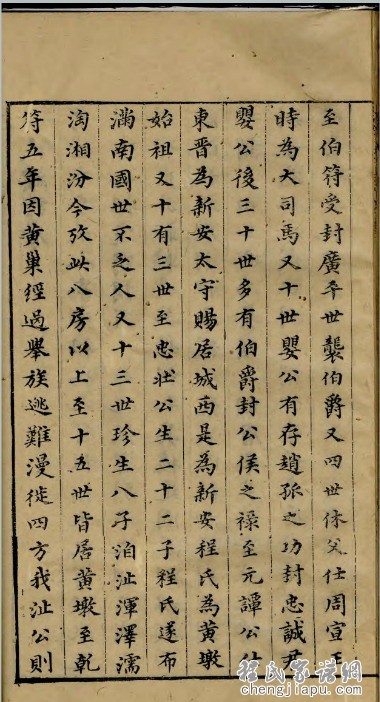 至伯符受封廣平世襲伯爵又四世休父仕周宣王
時為大司馬又十世嬰公有存趙孤之功封忠誠君
嬰公後三十世多有伯爵封公侯之祿至元譚公仕
東晋為新安太守賜居城西是為新安程氏為黄墩
始祖又十有三世至忠壯公生二十二子程氏遂布
滿南國世不乏人又十三世珍生八子洎沚渾澤濡
淘湘汾今攷此八房以上至十五世皆居黄墩至乾
符五年因黄巢經過舉族逃難漫徙四方我沚公則
程氏家譜網
chengjiapu.com